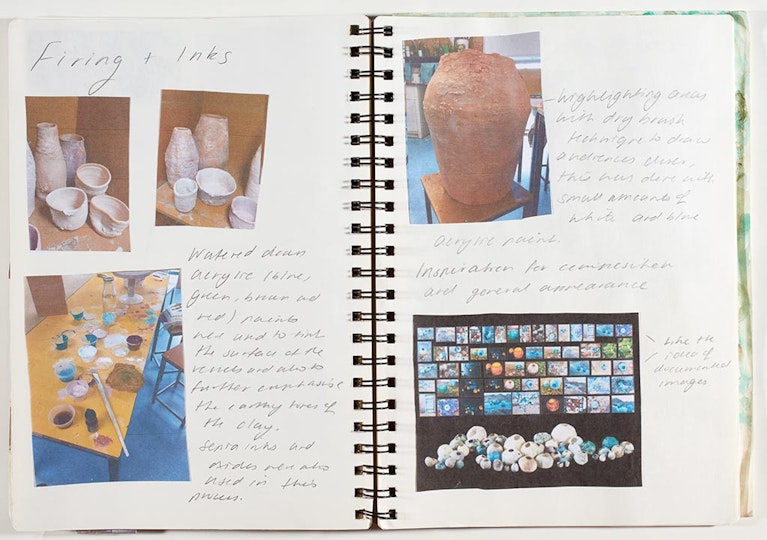 Firing + Inks
Watered down
acrylic (blue,
green, brown and
red) paints
were used to tint
the surface of the
vessels and also to
further emphasise
the earthy tones of
the clay.
Sepia inks and
oxides were also
used in this
process.
highlighting areas
with dry brush
technique to draw
audiences closer,
this was done with
small amounts of
white and blue
acrylic paint.
Inspiration for composition
and general appearance
like the
idea of
documented
images